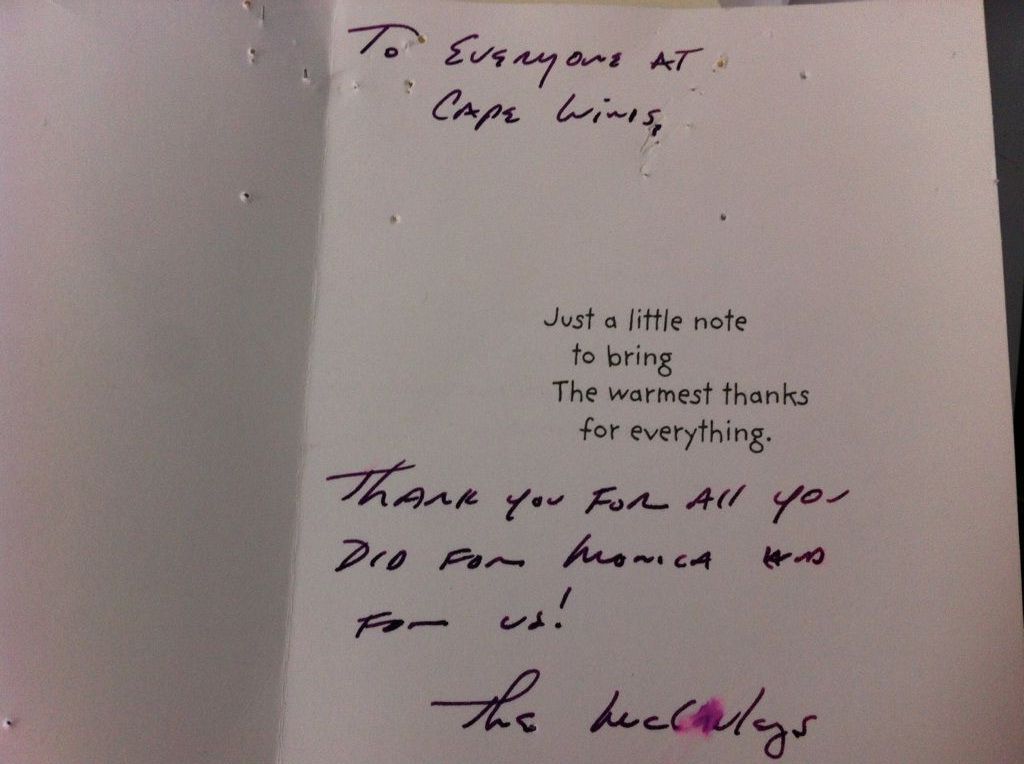 To Everyone at
Cape Winds,
Just a little note
to bring
The warmest thanks
for everything.
Thank you for all you
did for Monica and
for us!
The